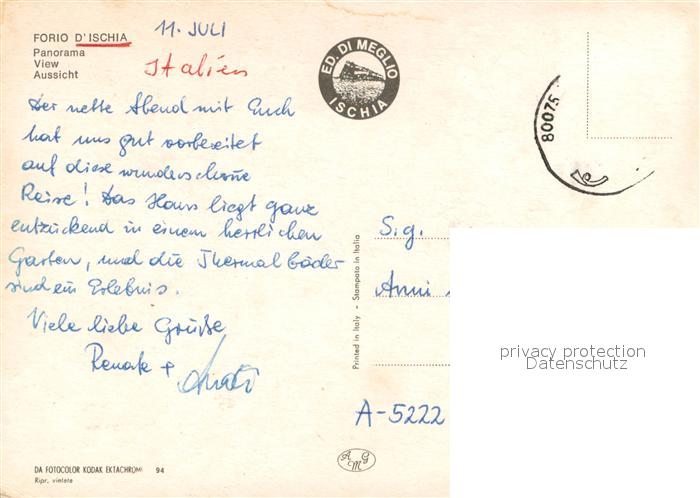 FORIO D'ISCHIA
Panorama
View
Aussicht
11. JULI
Italien
ED. DI MEGLIO
ISCHIA
80075
Der nette Abend mit Euch
hat uns gut vorbereitet
auf diese wunderschöne
Reise! Das Haus liegt ganz
entzückend in einem herrlichen
Garten, und die Thermalbäder
sind ein Erlebnis.
Viele liebe Grüße
Renate +
S.g.
Anni
A-5222
Printed in Italy - Stampato in Italia
privacy protection
Datenschutz
DA FOTOCOLOR KODAK EKTACHROME 94
Ripr. vietata
A G M